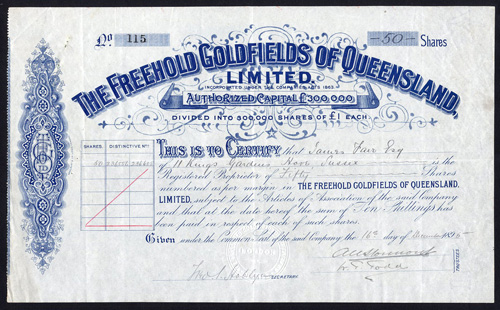 No. 115 -50- Shares
THE FREEHOLD GOLDFIELDS OF QUEENSLAND,
LIMITED.
INCORPORATED UNDER THE COMPANIES ACTS 1863.
AUTHORIZED CAPITAL £300,000.
DIVIDED INTO 300,000 SHARES OF £1 EACH.
SHARES. DISTINCTIVE Nos.
50
THIS IS TO CERTIFY that James Fair Esq
11 Kings Gardens Hove Sussex is the
Registered Proprietor of Fifty Shares
numbered as per margin in THE FREEHOLD GOLDFIELDS OF QUEENSLAND,
LIMITED, subject to the Articles of Association of the said Company
and that at the date hereof the sum of Ten Shillings has
been paid in respect of each of such shares.
Given under the Common Seal of the said Company, the 16th day of 189
SECRETARY
TRUSTEES.